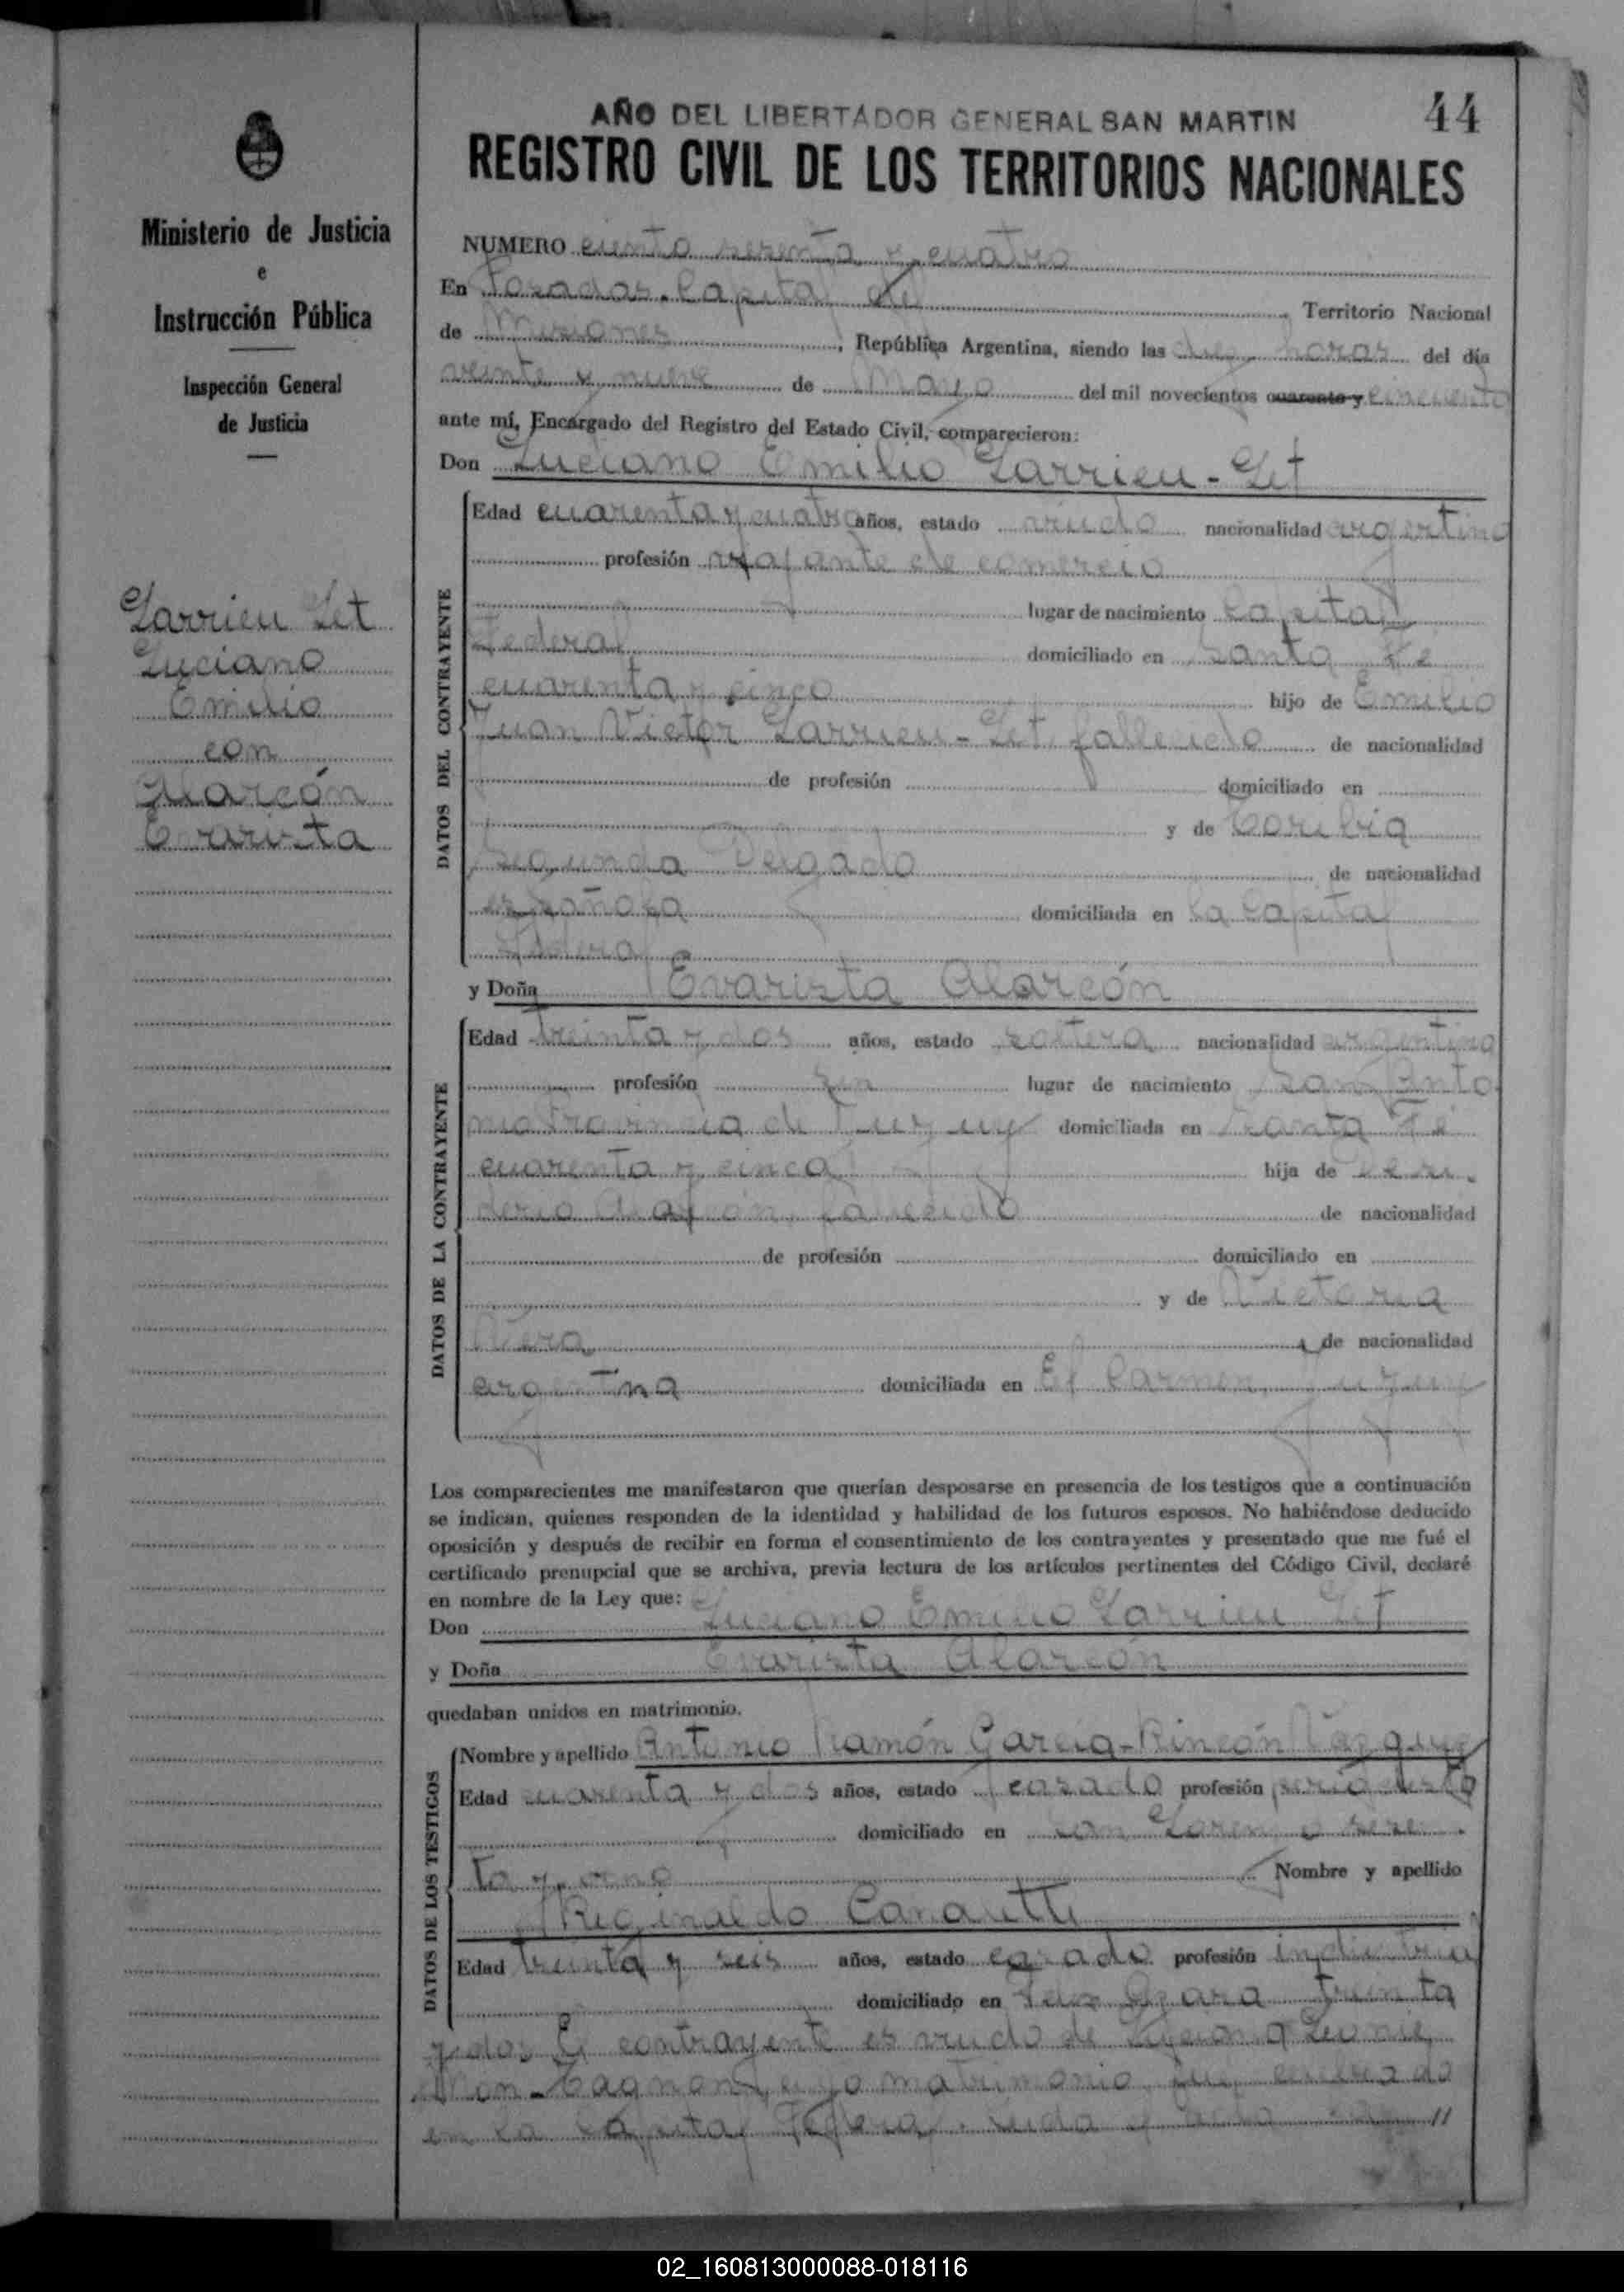 44
AÑO DEL LIBERTADOR GENERAL SAN MARTIN
REGISTRO CIVIL DE LOS TERRITORIOS NACIONALES
Ministerio de Justicia
e
Instrucción Pública
Inspección General
de Justicia
Larrieu Let
Luciano
Emilio
con
Alarcón
Evarista
NUMERO ciento sesenta y cuatro
En Posadas, Capital del Territorio Nacional
de Misiones, República Argentina, siendo las diez horas del día
veinte y nueve de Mayo del mil novecientos cuarenta y cincuenta
ante mí, Encargado del Registro del Estado Civil, comparecieron:
Don Luciano Emilio Larrieu-Let
DATOS DEL CONTRAYENTE
Edad cuarenta y cuatro años, estado viudo nacionalidad argentino
profesión viajante de comercio
lugar de nacimiento Capital
Federal domiciliado en Santa Fé
cuarenta y cinco hijo de Emilio
Juan Victor Larrieu-Let, fallecido de nacionalidad
de profesión domiciliado en
y de Toribia
Segunda Delgado de nacionalidad
española domiciliada en la Capital
Federal
y Doña Evarista Alarcón
DATOS DE LA CONTRAYENTE
Edad treinta y dos años, estado soltera nacionalidad argentina
profesión sin lugar de nacimiento San Anto-
nio Provincia de Jujuy domiciliada en Santa Fé
cuarenta y cinco hija de Desi-
derio Alarcón, fallecido de nacionalidad
de profesión domiciliado en
y de Victoria
Vera de nacionalidad
argentina domiciliada en El Carmen Jujuy
Los comparecientes me manifestaron que querían desposarse en presencia de los testigos que a continuación
se indican, quienes responden de la identidad y habilidad de los futuros esposos. No habiéndose deducido
oposición y después de recibir en forma el consentimiento de los contrayentes y presentado que me fué el
certificado prenupcial que se archiva, previa lectura de los artículos pertinentes del Código Civil, declaré
en nombre de la Ley que:
Don Luciano Emilio Larrieu Let
y Doña Evarista Alarcón
quedaban unidos en matrimonio.
DATOS DE LOS TESTIGOS
Nombre y apellido Antonio Ramón García-Rincón Vázquez
Edad cuarenta y dos años, estado casado profesión periodista
domiciliado en San Lorenzo sesen-
ta y uno Nombre y apellido
Reginaldo Canautti
Edad treinta y seis años, estado casado profesión industrial
domiciliado en Felix Azara treinta
y dos El contrayente es viudo de Leonie
cuyo matrimonio fué celebrado
en la Capital Federal. Leída el acta //
02_160813000088-018116